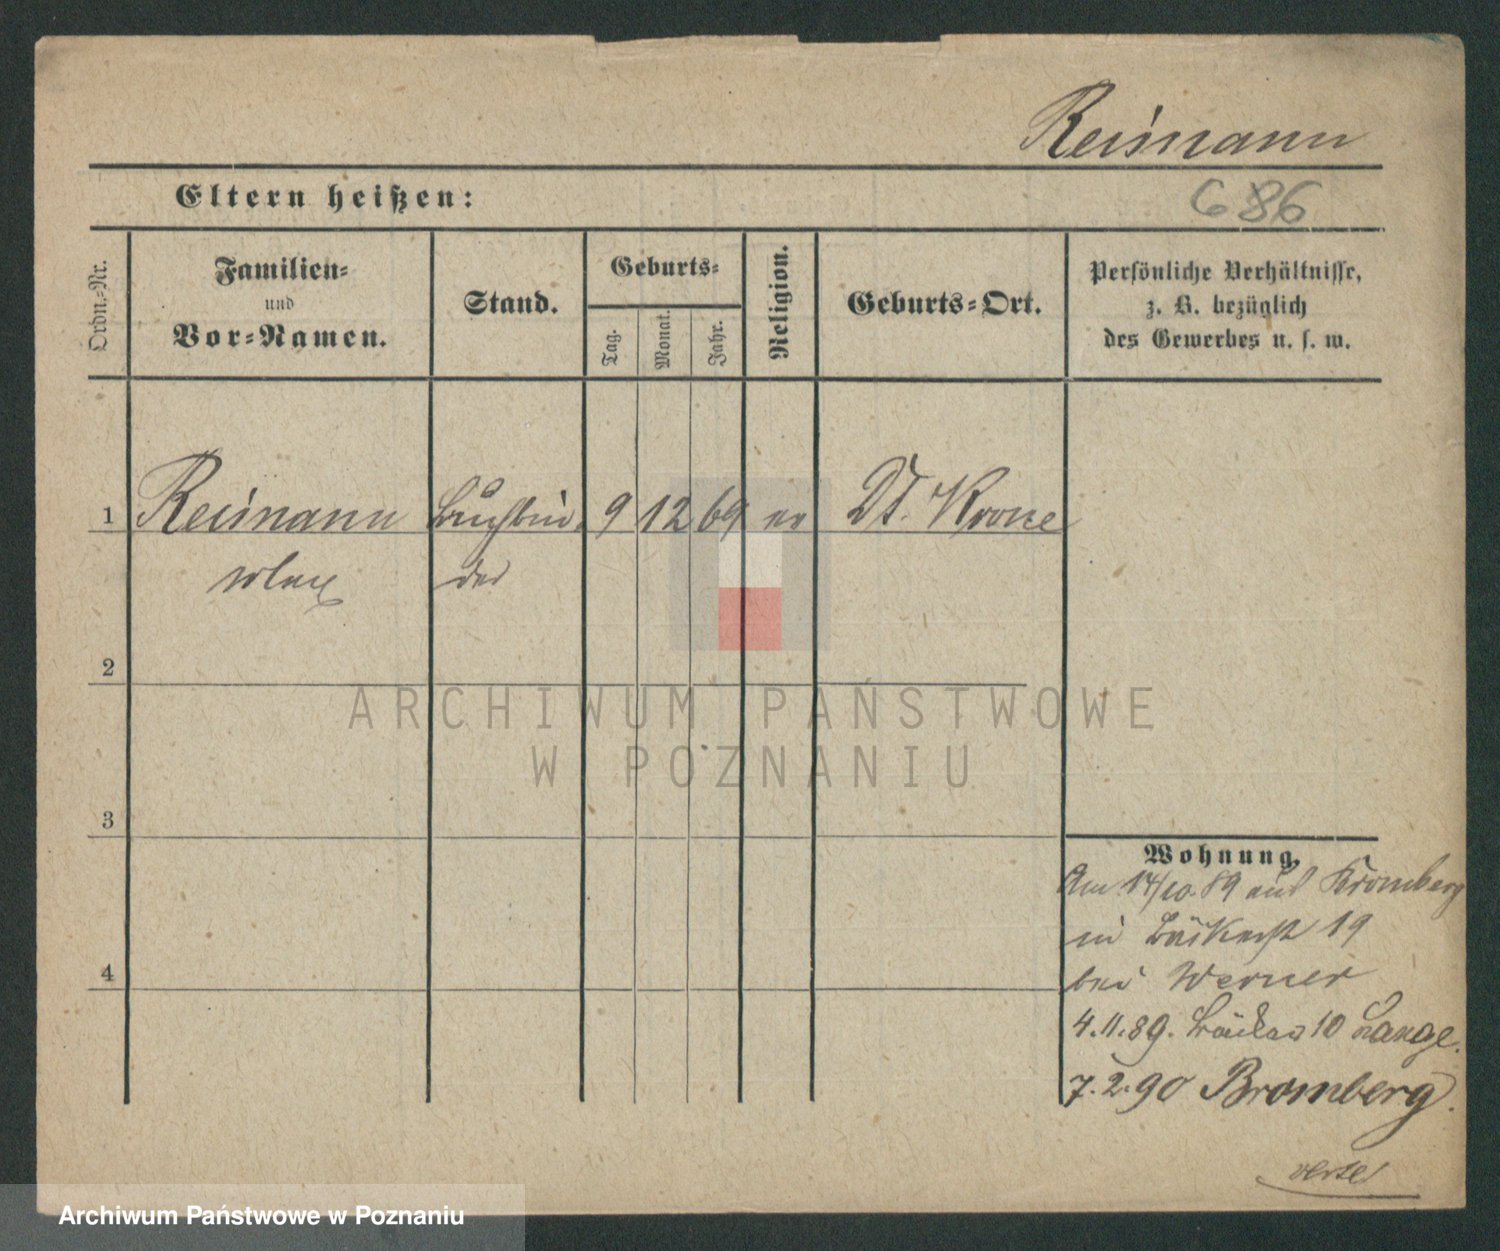 Reimann
Eltern heißen:
686
Ordn.-Nr.
Familien-
und
Vor-Namen.
Stand.
Geburts-
Tag-
Monat.
Jahr.
Religion.
Geburts-Ort.
Persönliche Verhältnisse,
z. B. bezüglich
des Gewerbes u. s. w.
1 Reimann Buchbin- 9 12 69 ev Dt. Krone
der
2
3
4
Wohnung.
Am 14/10.89 aus Bromberg
in Bäckerst 19
bei Werner
4.11.89. 10 Lange.
7.2.90 Bromberg.
ARCHIWUM PAŃSTWOWE
W POZNANIU
Archiwum Państwowe w Poznaniu